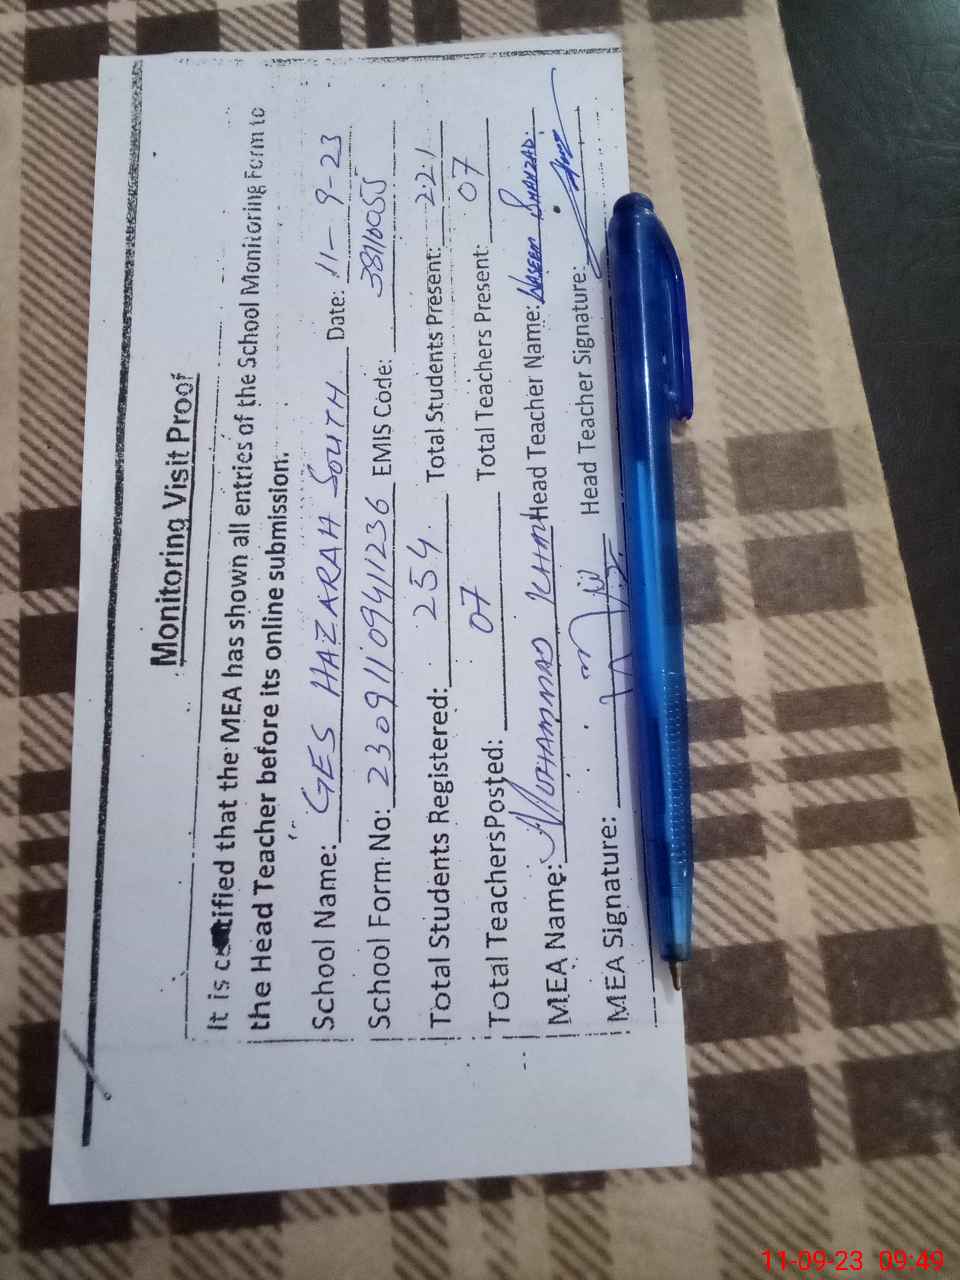 Monitoring Visit Proof
It is certified that the MEA has shown all entries of the School Monitoring Form to
the Head Teacher before its online submission.
School Name: GES HAZARAH SOUTH Date: 11-9-23
School Form No: 23091109411236 EMIS Code: 38110055
Total Students Registered: 254 Total Students Present: 221
Total Teachers Posted: 07 Total Teachers Present: 07
MEA Name: MUHAMMAD Head Teacher Name: NASEEM SHAHZAD
MEA Signature: Head Teacher Signature:
11-09-23 09:49